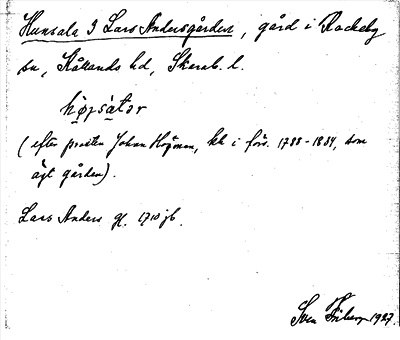 Hunsala 3 Lars Andersgården, gård i Rackeby
sn, Kållands hd, Skarab. l.
höᶎsátar
(efter prosten Johan Högman, kh i förs. 1788-1804, som
ägt gården).
Lars Anders g. 1710 jb.
Sven Friberg 1927.